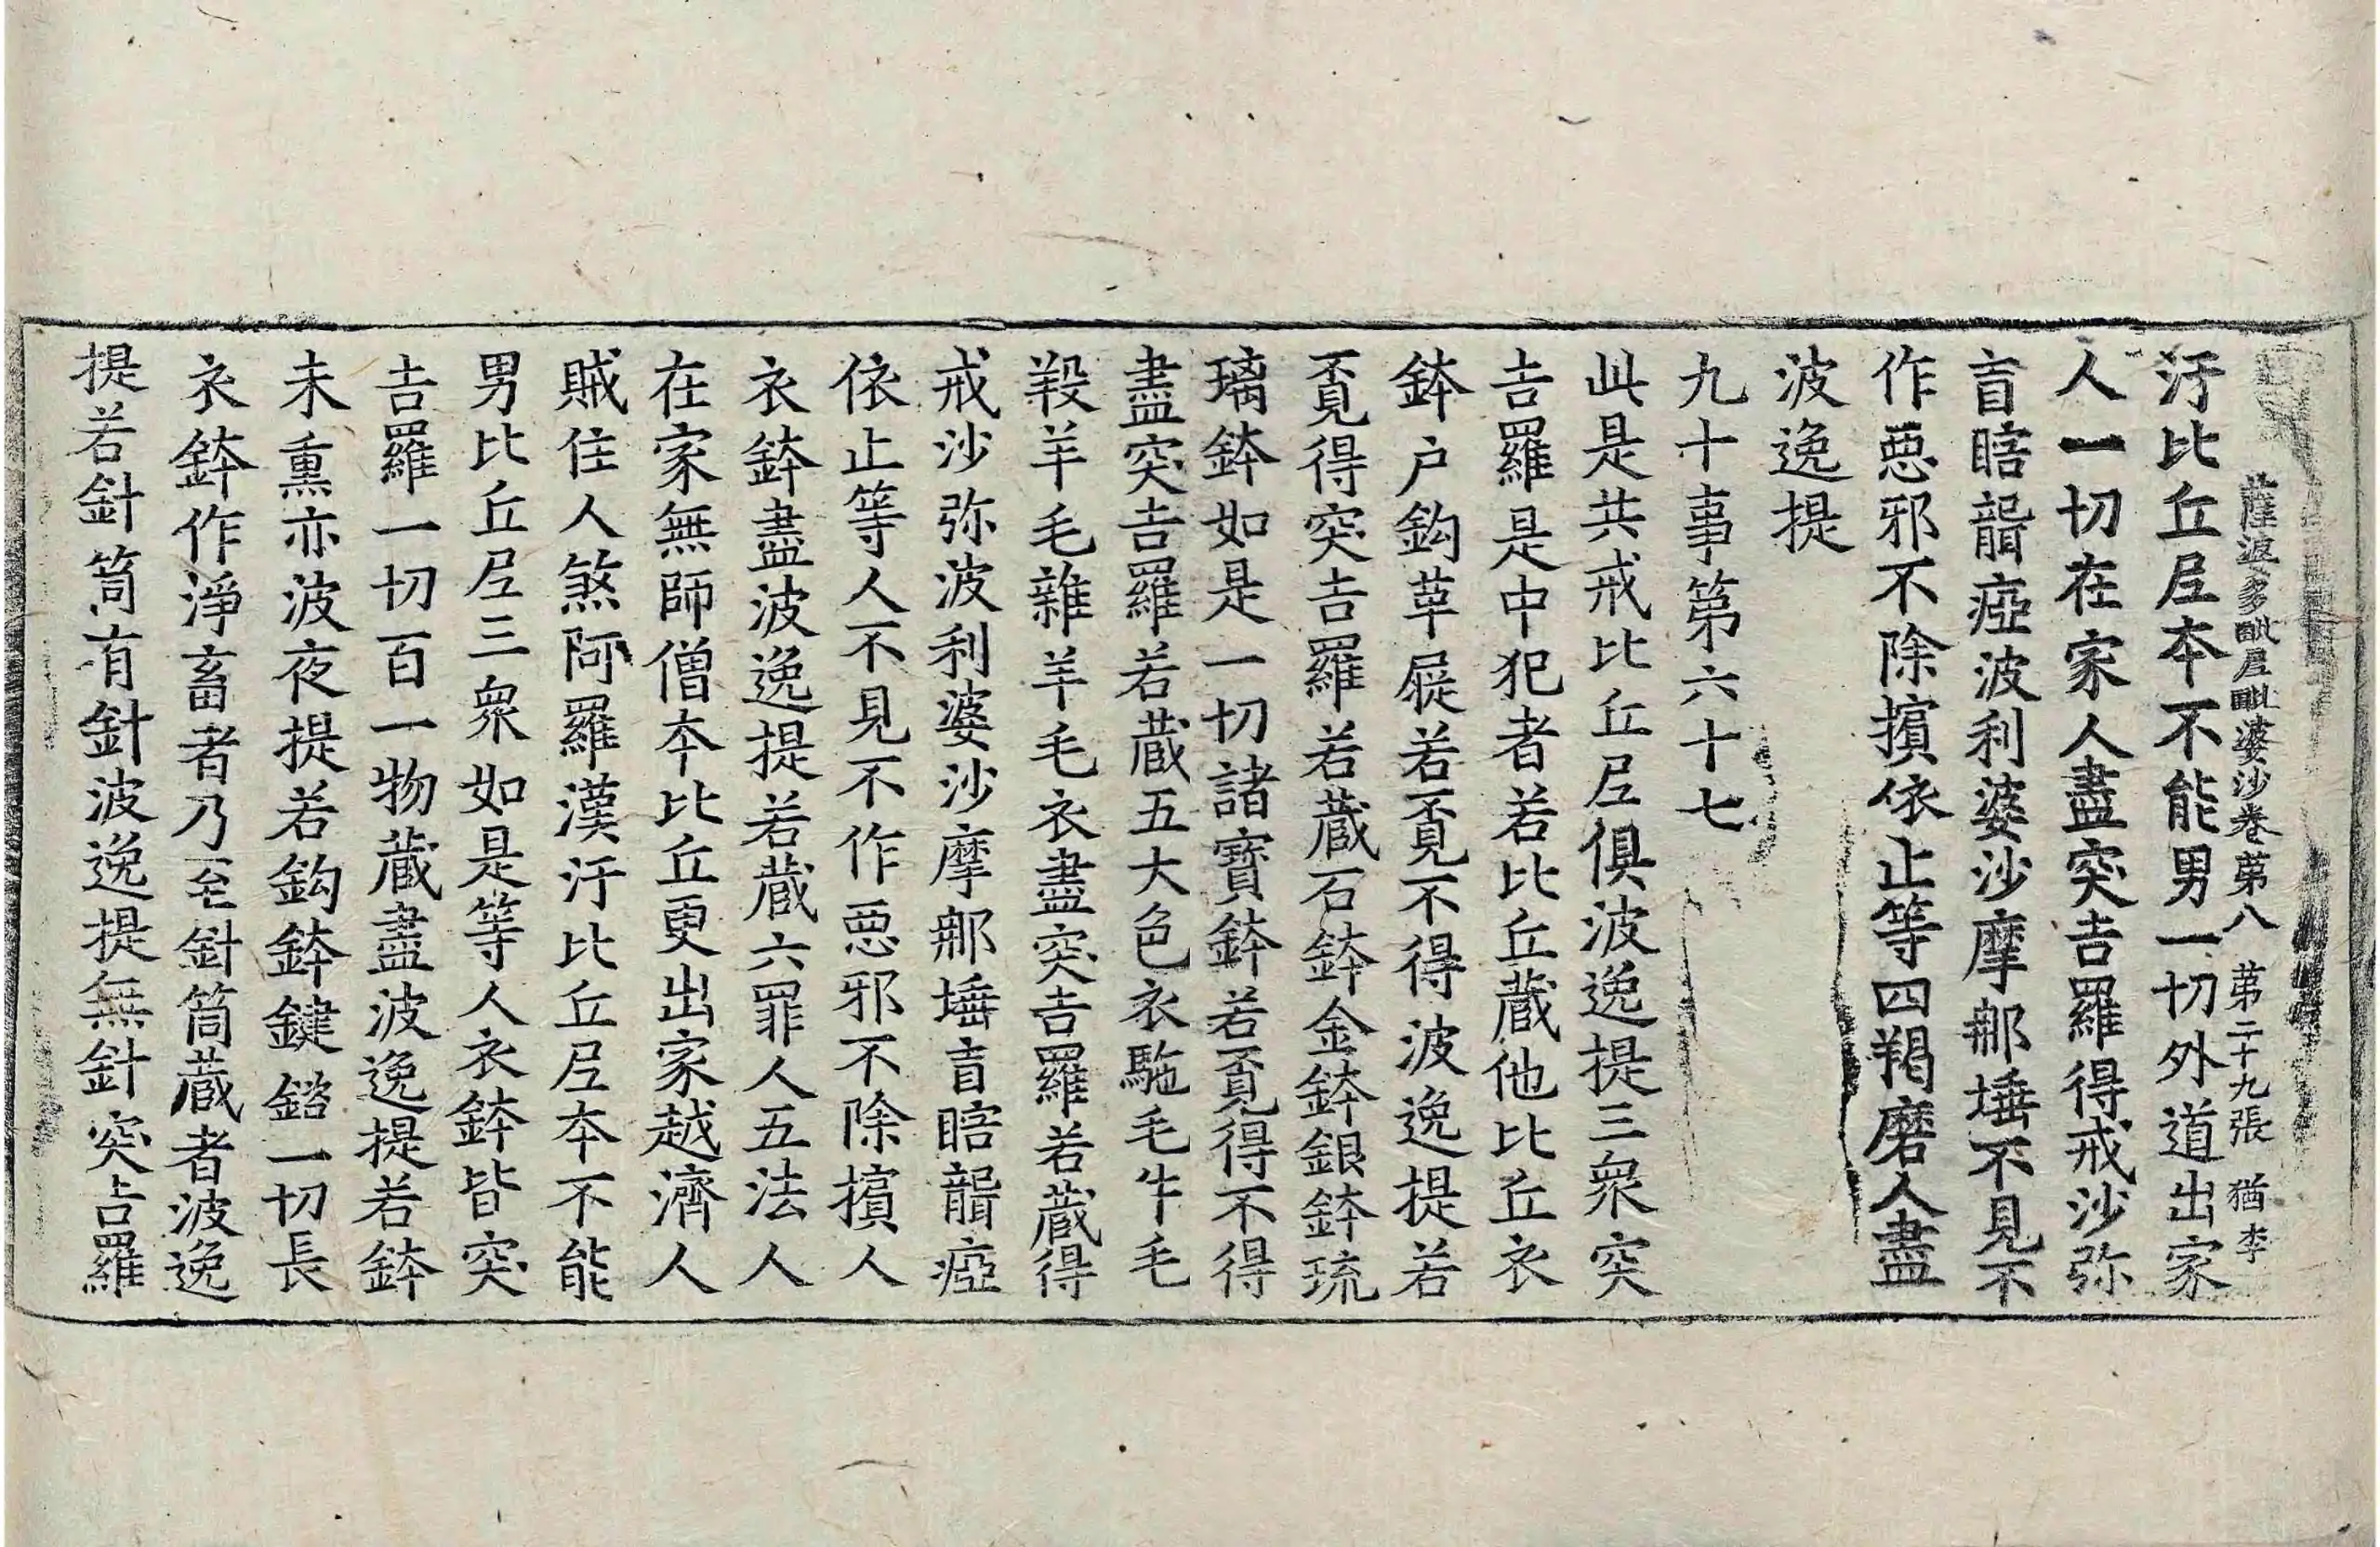 薩婆多毗尼毗婆沙卷苐八　苐二十九張　猶李
汙比丘尼本不能男一切外道出家
人一切在家人盡突吉羅得戒沙弥
盲瞎聾瘂波利婆沙摩那埵不見不
作惡邪不除擯依止等四羯磨人盡
波逸提
九十事第六十七
此是共戒比丘尼俱波逸提三衆突
吉羅是中犯者若比丘蔵他比丘衣
鉢户鈎革屣若覓不得波逸提若
覓得突吉羅若蔵石鉢金鉢銀鉢琉
璃鉢如是一切諸寶鉢若覓得不得
盡突吉羅若蔵五大色衣駞毛牛毛
羖羊毛雜羊毛衣盡突吉羅若蔵得
戒沙弥波利婆沙摩那埵盲瞎聾瘂
依止等人不見不作惡邪不除擯人
衣鉢盡波逸提若蔵六罪人五法人
在家無師僧本比丘更出家越濟人
賊住人煞阿羅漢汙比丘尼本不能
男比丘尼三衆如是等人衣鉢皆突
吉羅一切百一物蔵盡波逸提若鉢
未熏亦波夜提若鈎鉢鍵鎔一切長
衣鉢作淨畜者乃至針筒蔵者波逸
提若針筒有針波逸提無針突吉羅